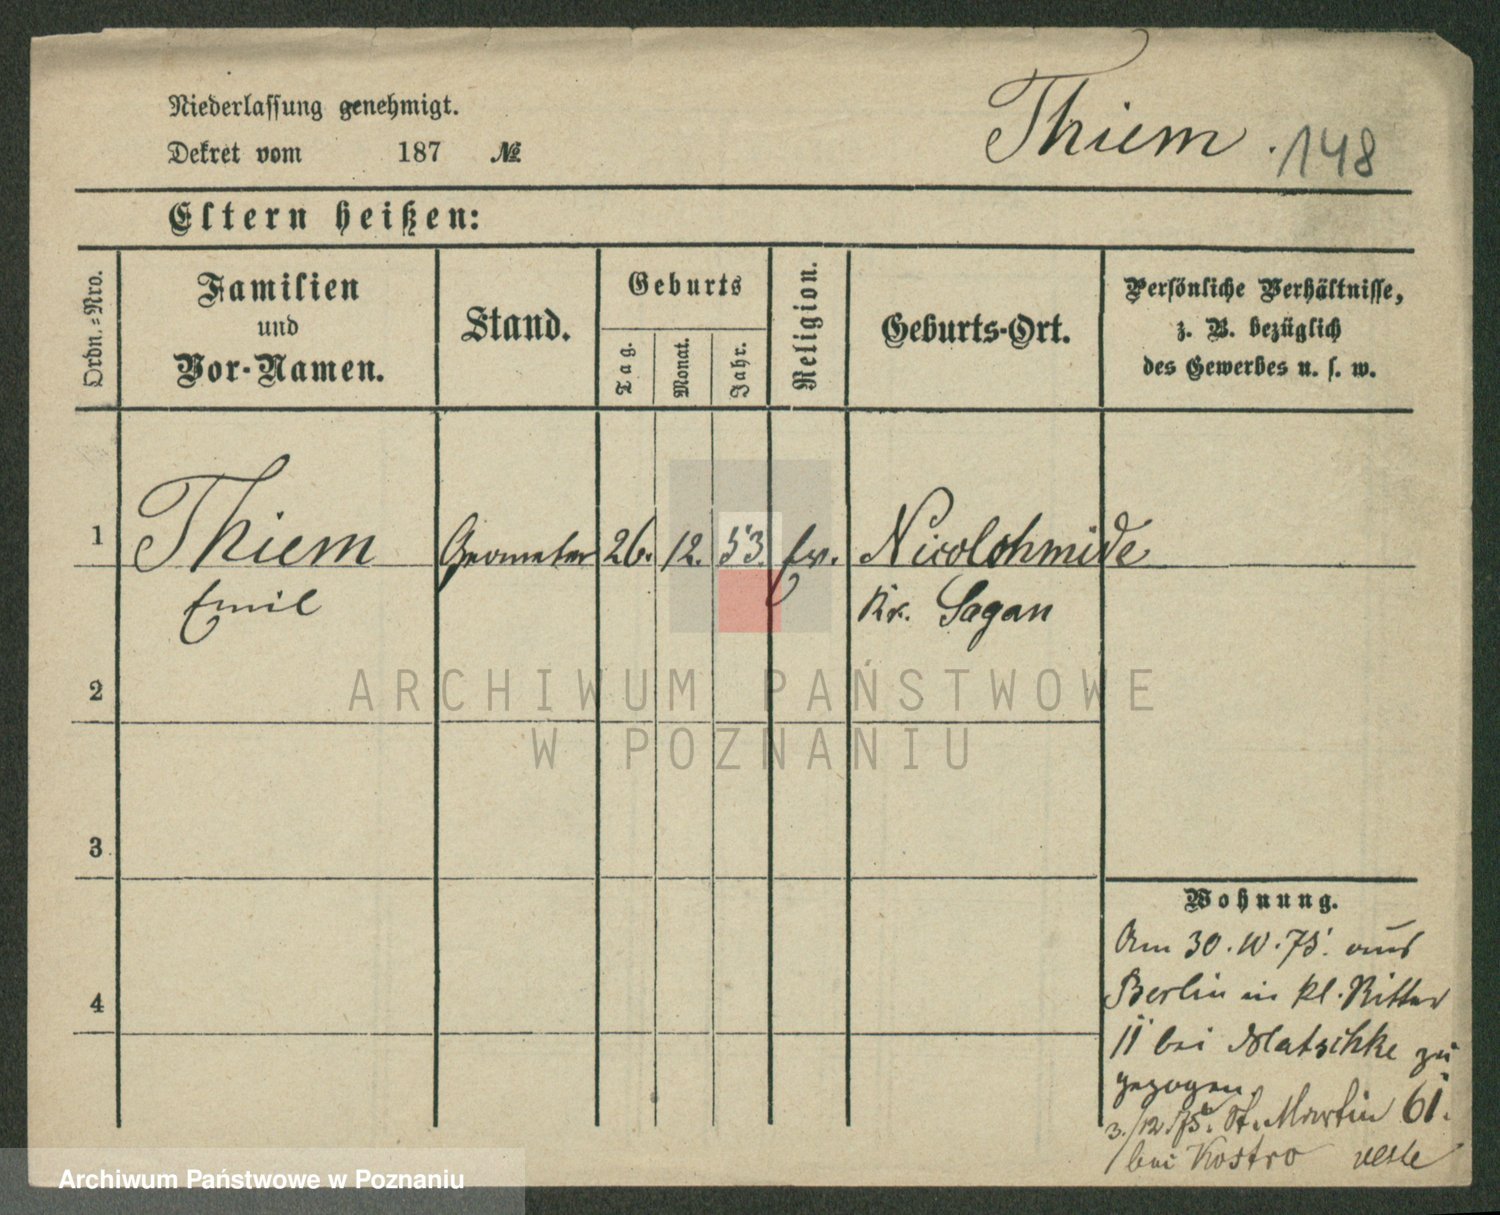 Niederlassung genehmigt.
Dekret vom 187 №
Thiem. 148
Eltern heißen:
Ordn.-Nro.
Familien
und
Vor-Namen.
Stand.
Geburts
Tag.
Monat.
Jahr.
Religion.
Geburts-Ort.
Persönliche Verhältnisse,
z. B. bezüglich
des Gewerbes u. s. w.
1 Thiem Geometer 26. 12. 53. ev. Nicolschmide
Emil Kr. Sagan
2
3
4
Wohnung.
Am 30. 10. 75. aus
Berlin in kl. Ritter
11 bei Matschke zu
gezogen
3./12. 75. St. Martin 61.
bei Kostro
ARCHIWUM PAŃSTWOWE
W POZNANIU
Archiwum Państwowe w Poznaniu